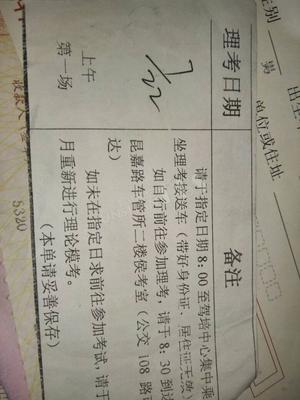 性别 男
单位或住址
理考日期
备注
7/22
上午
第一场
请于指定日期 8:00 至驾培中心集中乘
坐理考接送车(带好身份证,居住证无效)
如自行前往参加理考,请于 8:30 到达
昆嘉路车管所二楼侯考室(公交 108 路
达)
如未在指定日求前往参加考试,请于
月重新进行理论模考。
(本单请妥善保存)
收款人
5320